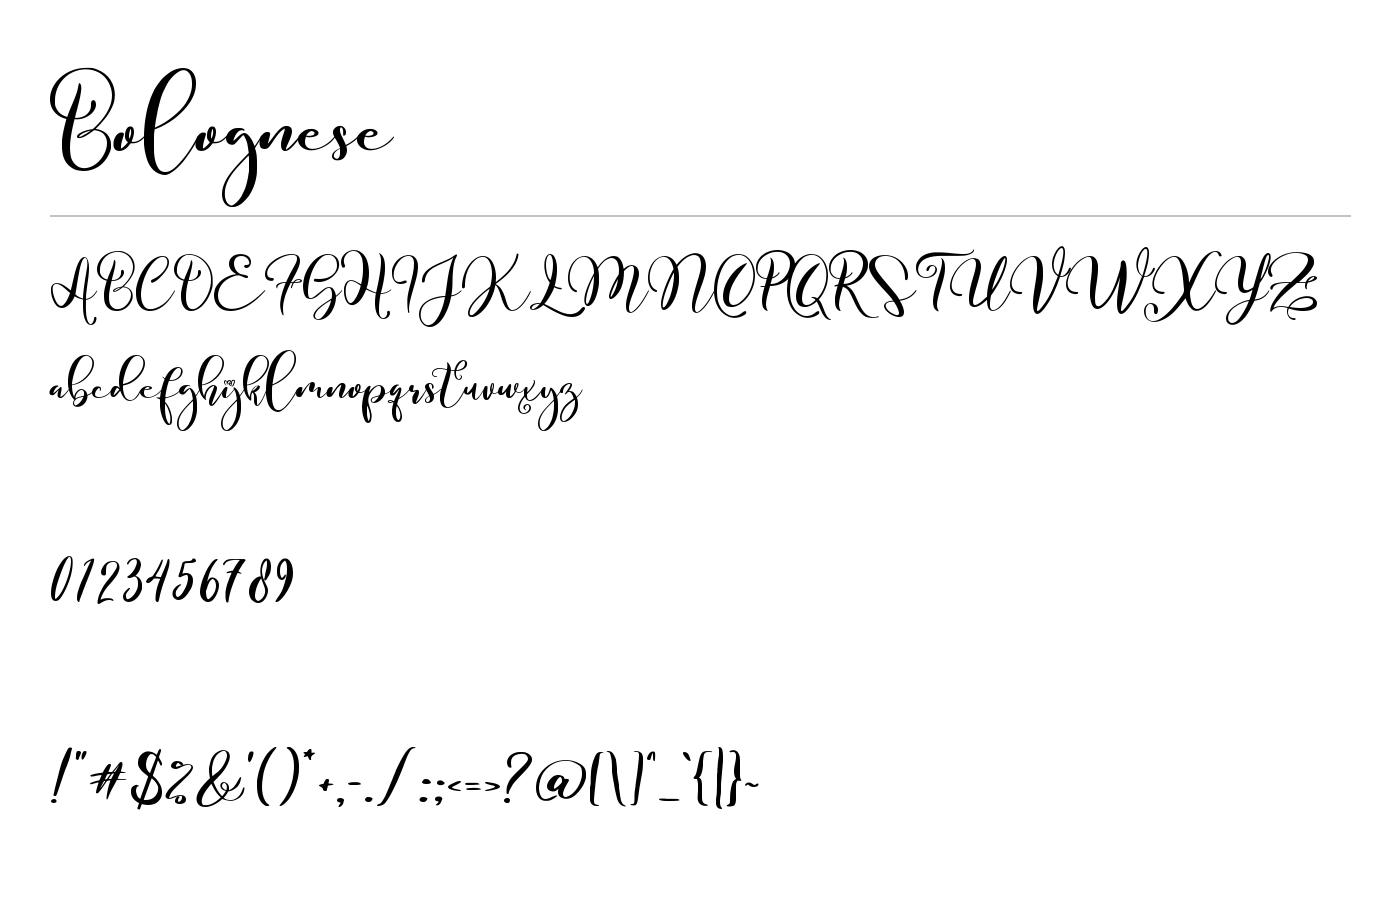 Bolognese
ABCDEFGHIJKLMNOPQRSTUVWXYZ
abcdefghijklmnopqrstuvwxyz
0123456789
!"#$%&'()*+,-./:;<=>?@[\]^_`{|}~